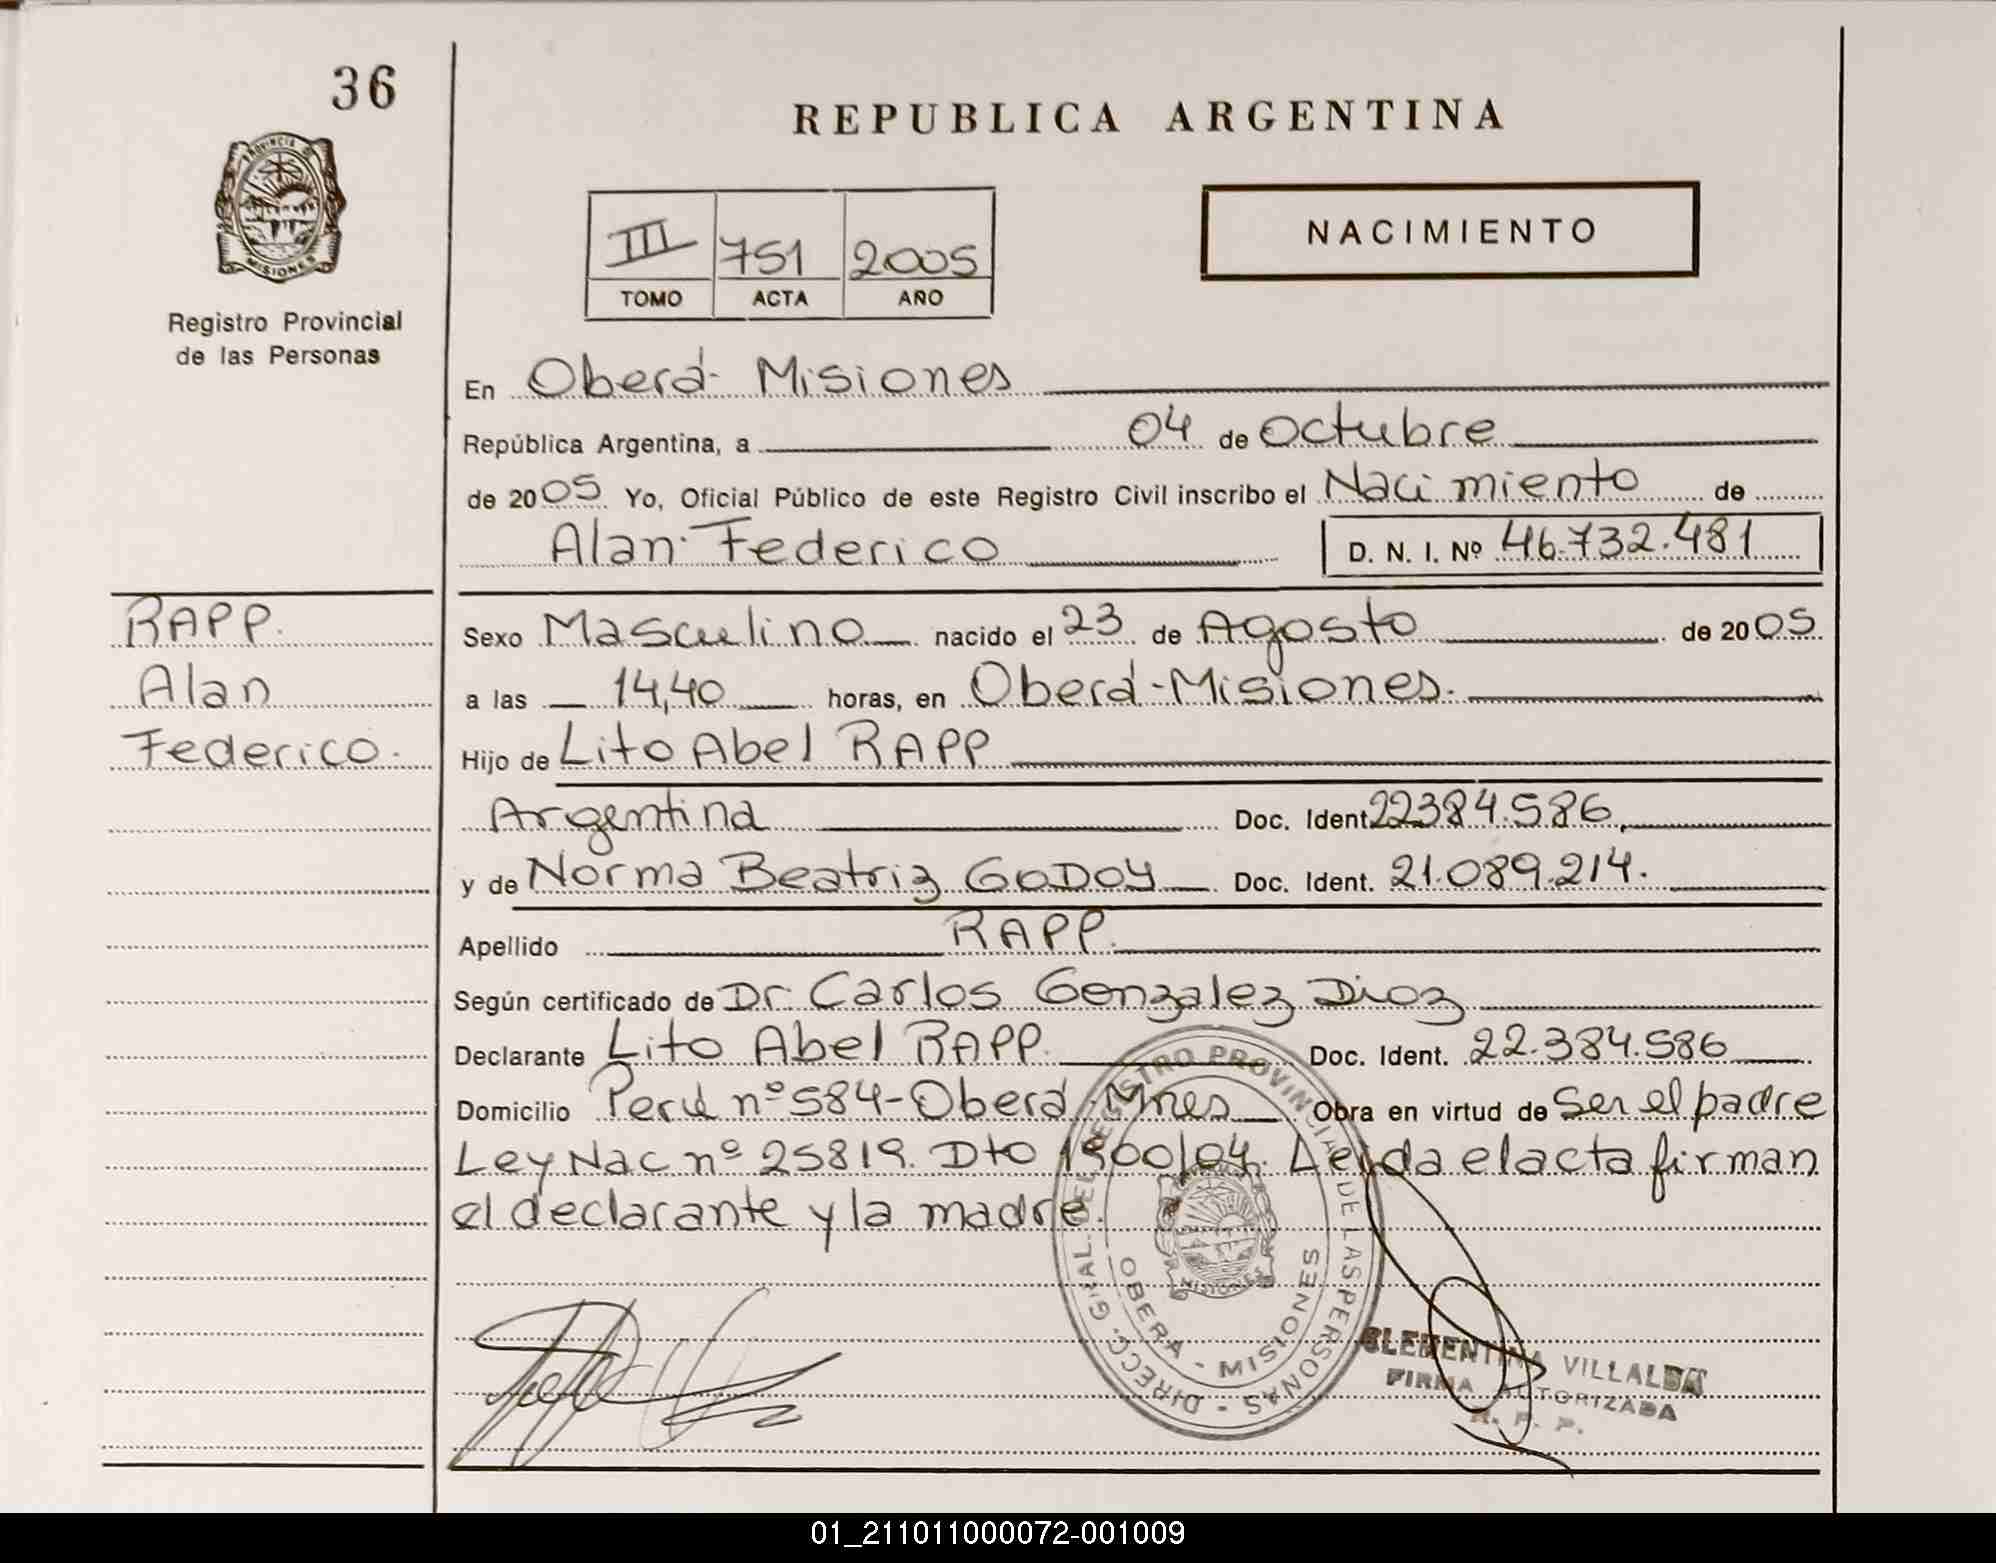 36
PROVINCIA DE
MISIONES
Registro Provincial
de las Personas
REPUBLICA ARGENTINA
III 751 2005
TOMO ACTA AÑO
NACIMIENTO
En Oberá- Misiones
República Argentina, a 04 de Octubre
de 2005 Yo, Oficial Público de este Registro Civil inscribo el Nacimiento de
Alan Federico D. N. I. Nº 46.732.481
RAPP.
Alan
Federico.
Sexo Masculino nacido el 23 de Agosto de 2005
a las 14,40 horas, en Oberá-Misiones.
Hijo de Lito Abel RAPP
Argentina Doc. Ident. 22384.586
y de Norma Beatriz GODOY Doc. Ident. 21.089.214.
Apellido RAPP.
Según certificado de Dr. Carlos Gonzalez Dioz
Declarante Lito Abel RAPP. Doc. Ident. 22.384.586
Domicilio Perú nº 584-Oberá Mnes Obra en virtud de ser el padre
Ley Nac nº 25819. Dto 1900/04. Leida el acta firman
el declarante y la madre.
DIRECC. GRAL. DEL REGISTRO PROVINCIAL DE LAS PERSONAS -
OBERA - MISIONES
MISIONES
CLEMENTINA VILLALBA
FIRMA AUTORIZADA
R. P. P.
01_211011000072-001009